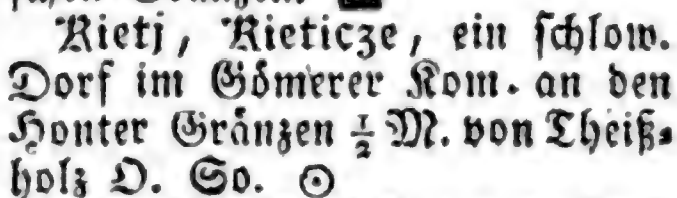 Rietj, Rieticze, ein schlow.
Dorf im Gömerer Kom. an den
Honter Gränzen ½ M. von Theiß-
holz O. So. ☉